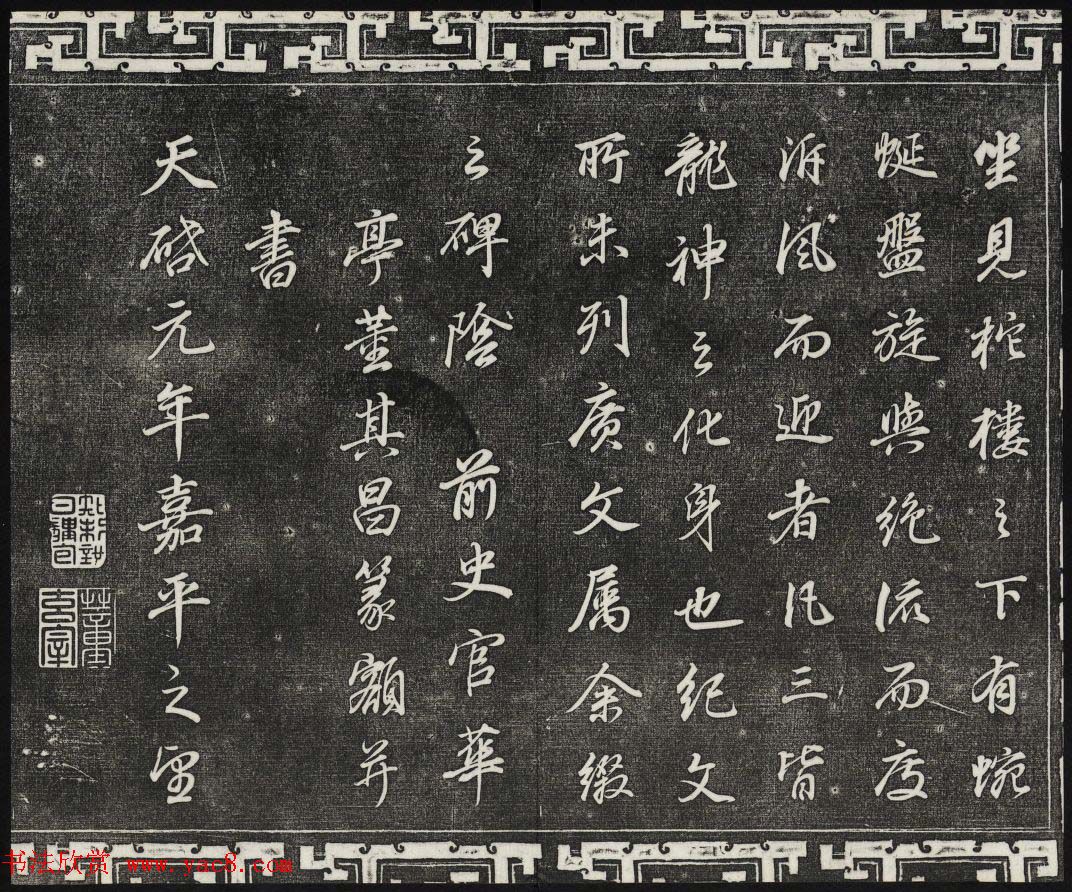 坐見柁樓之下有蜿
蜒盤旋與絶流而度
泝風而迎者凡三皆
龍神之化身也紀文
所未列廣文属余綴
之碑陰 前史官華
亭董其昌篆額并
書
天啓元年嘉平之望
书法欣赏 www.yac8.com